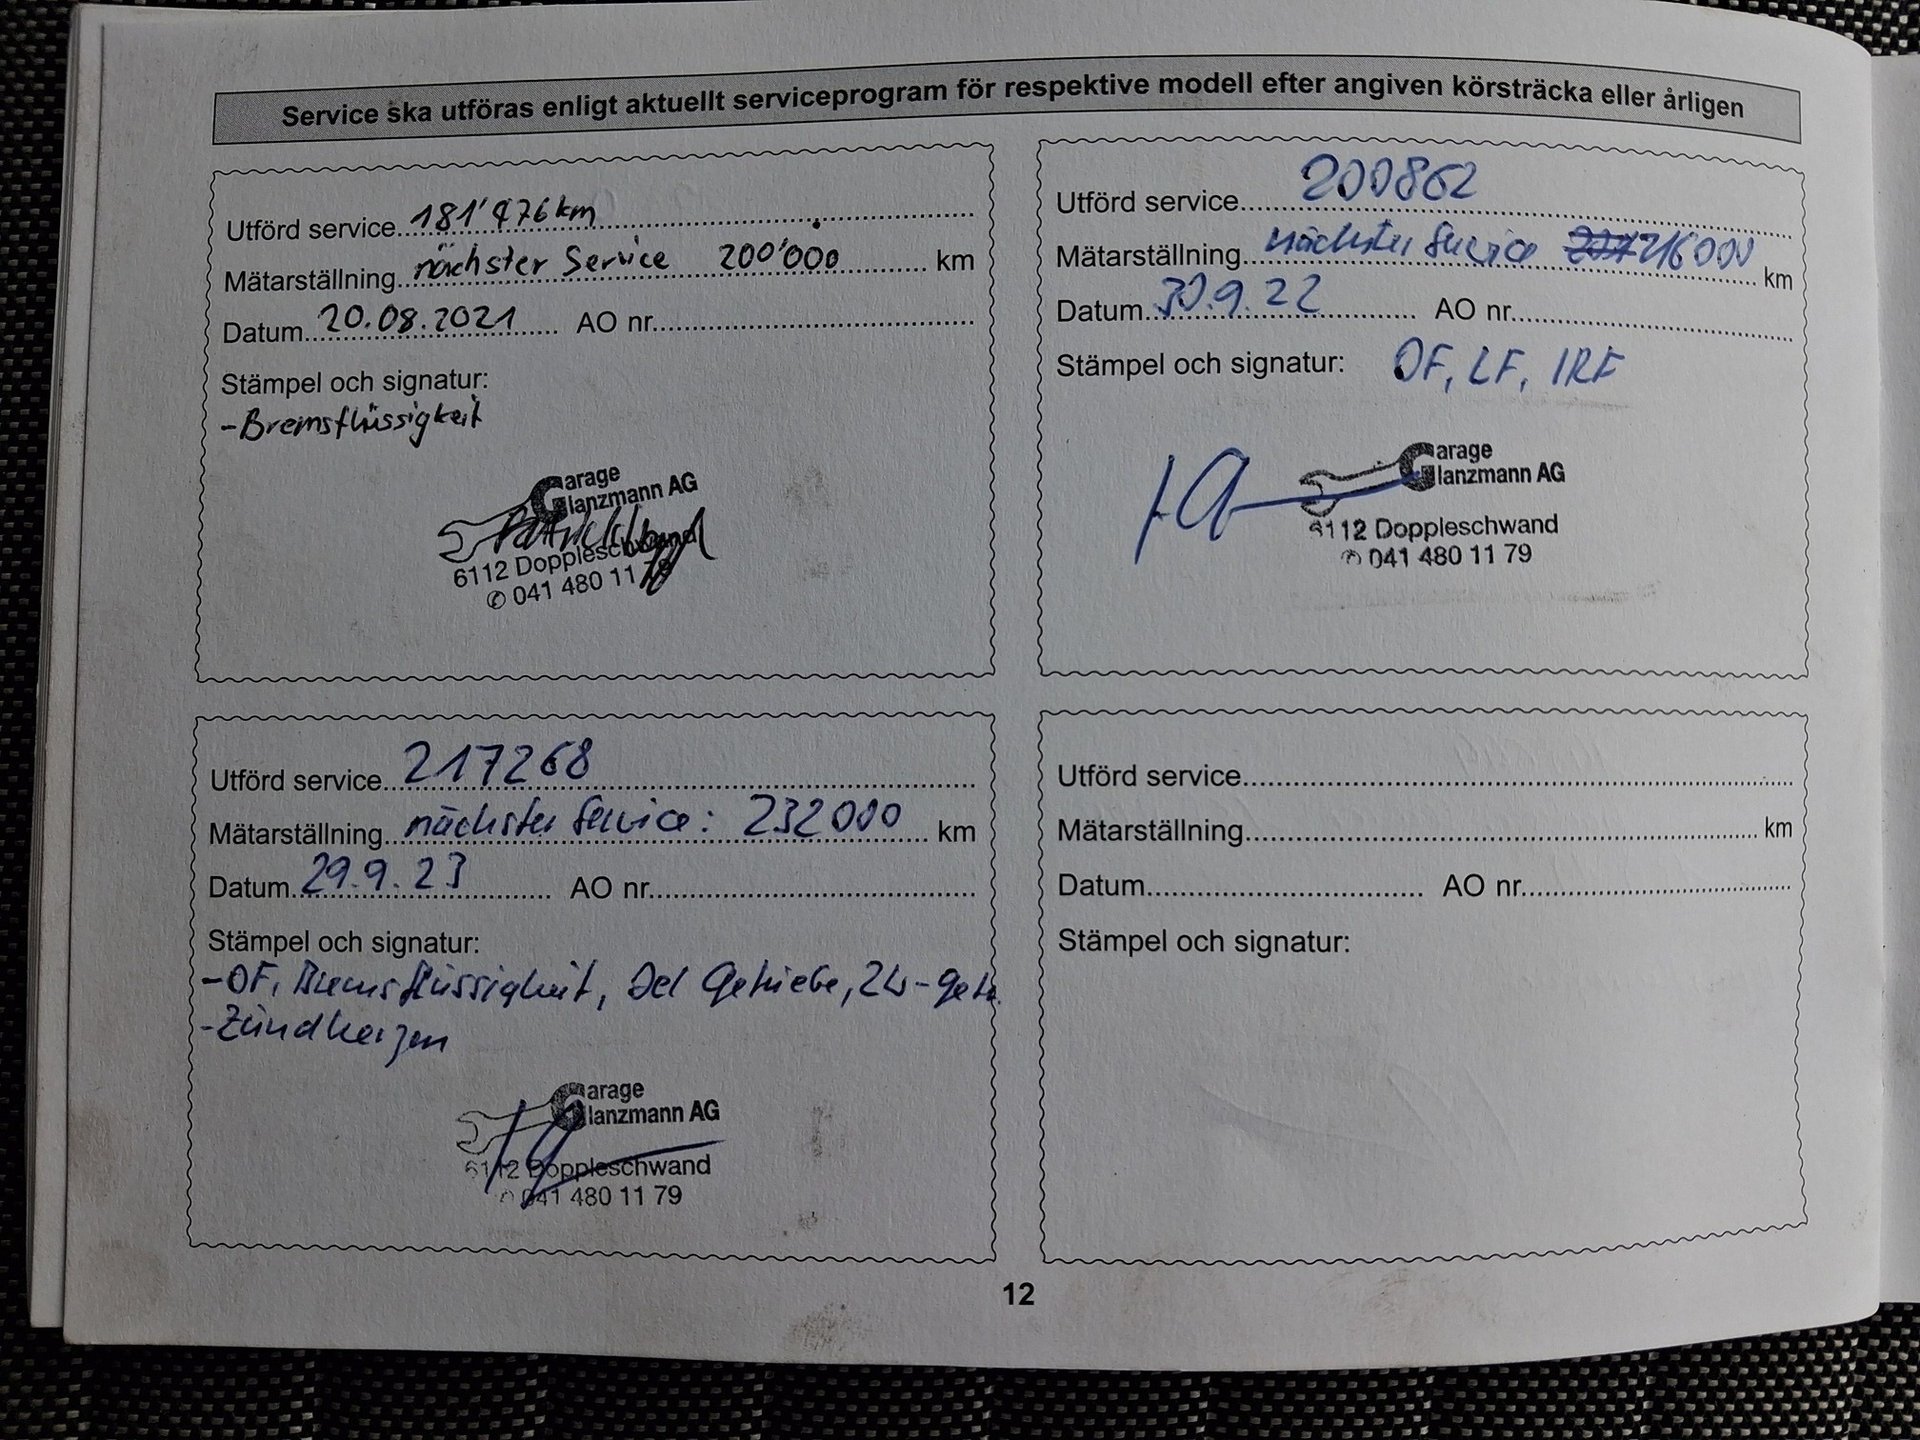 Service ska utföras enligt aktuellt serviceprogram för respektive modell efter angiven körsträcka eller årligen
Utförd service 181'476km
Mätarställning nächster Service 200'000 km
Datum 20.08.2021 AO nr
Stämpel och signatur:
-Bremsflüssigkeit
Garage
Glanzmann AG
6112 Doppleschwand
✆ 041 480 11 79
Utförd service 200862
Mätarställning nächster Service 216000 km
Datum 30.9.22 AO nr
Stämpel och signatur: OF, LF, IRF
Garage
Glanzmann AG
6112 Doppleschwand
✆ 041 480 11 79
Utförd service 217268
Mätarställning nächster Service: 232000 km
Datum 29.9.23 AO nr
Stämpel och signatur:
-OF, Bremsflüssigkeit, Oel Getriebe,
-Zündkerzen
Garage
Glanzmann AG
6112 Doppleschwand
✆ 041 480 11 79
Utförd service
Mätarställning km
Datum AO nr
Stämpel och signatur:
12